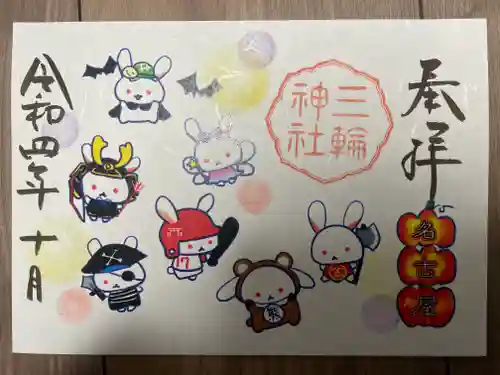 奉拝
名古屋
三輪
神社
17
熊
金
令和四年十月